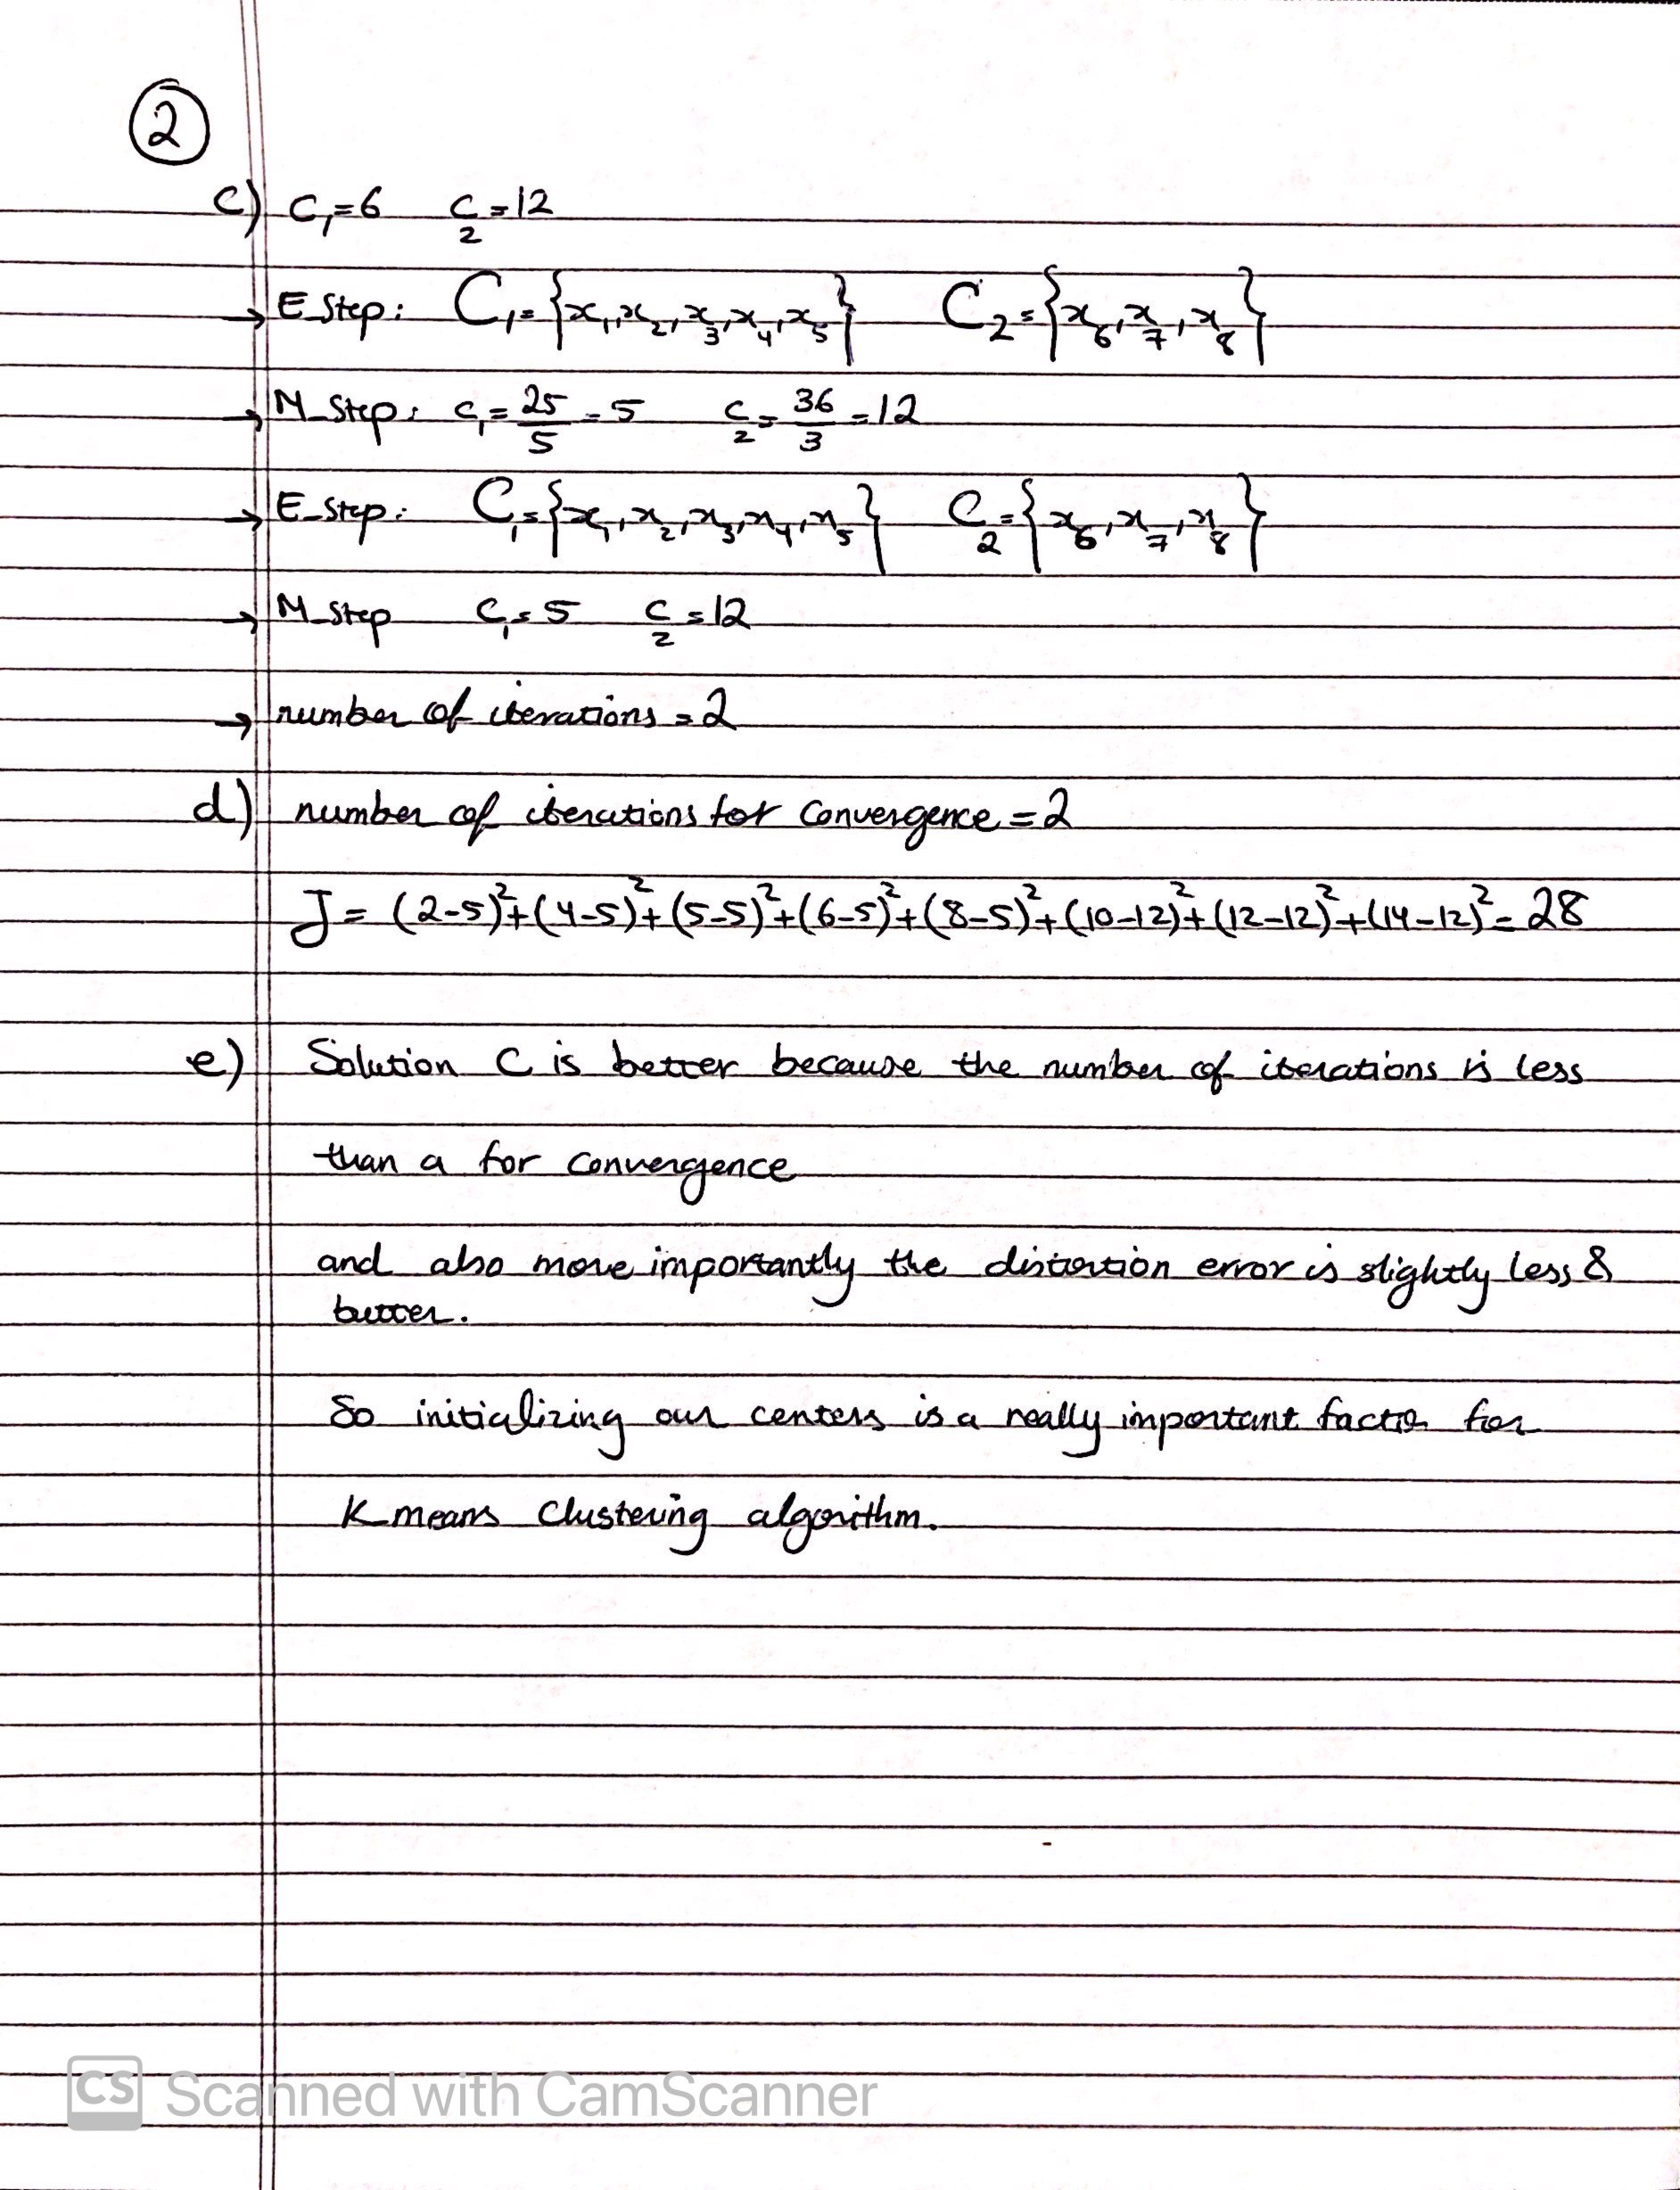 2
c) c₁=6 c₂=12
→ E_Step: C₁={x₁,x₂,x₃,x₄,x₅} C₂={x₆,x₇,x₈}
→ M_Step: c₁=25/5=5 c₂=36/3=12
→ E_Step: C₁={x₁,x₂,x₃,x₄,x₅} C₂={x₆,x₇,x₈}
→ M_Step c₁=5 c₂=12
→ number of iterations=2
d) number of iterations for convergence=2
J=(2-5)²+(4-5)²+(5-5)²+(6-5)²+(8-5)²+(10-12)²+(12-12)²+(14-12)²=28
e) Solution C is better because the number of iterations is less
than a for convergence
and also more importantly the distortion error is slightly less &
better.
So initializing our centers is a really important factor for
K_means Clustering algorithm.
CS Scanned with CamScanner